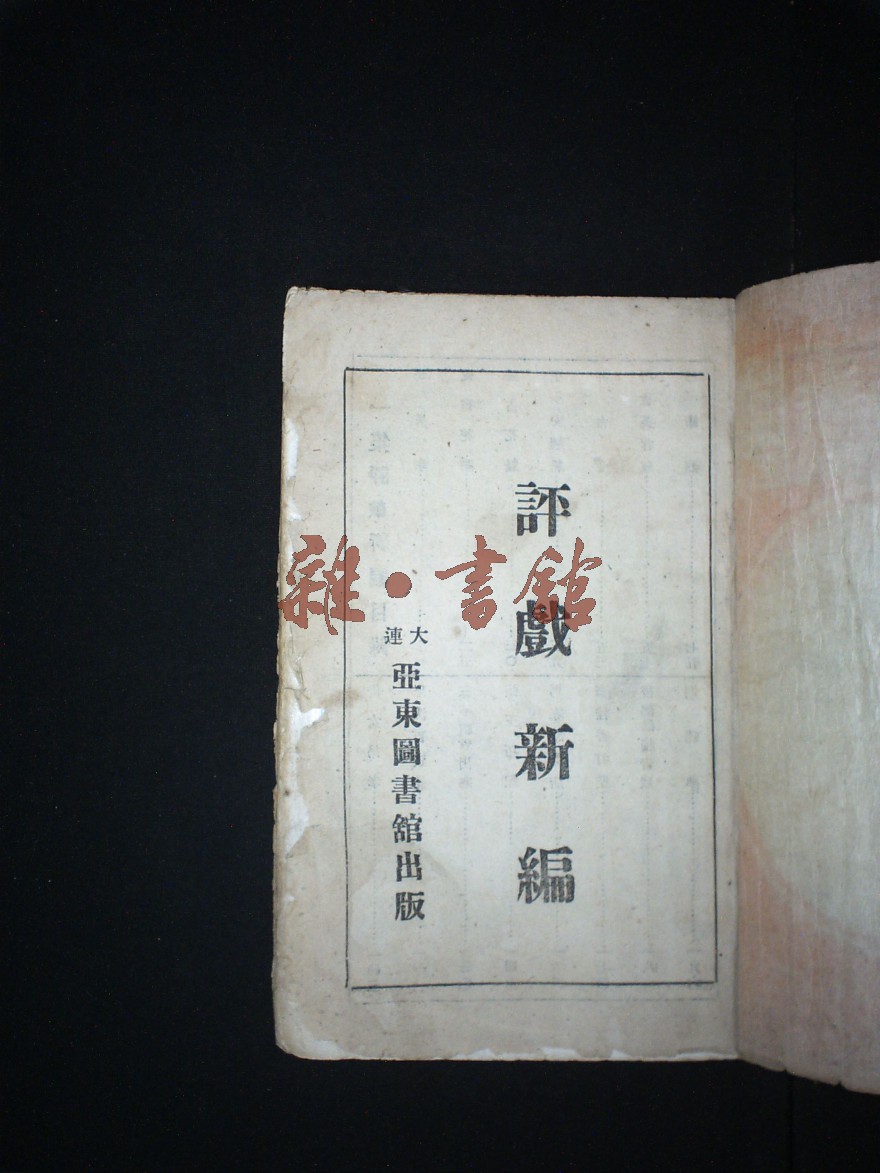 評戲新編
大連
亞東圖書館出版
雜·書館